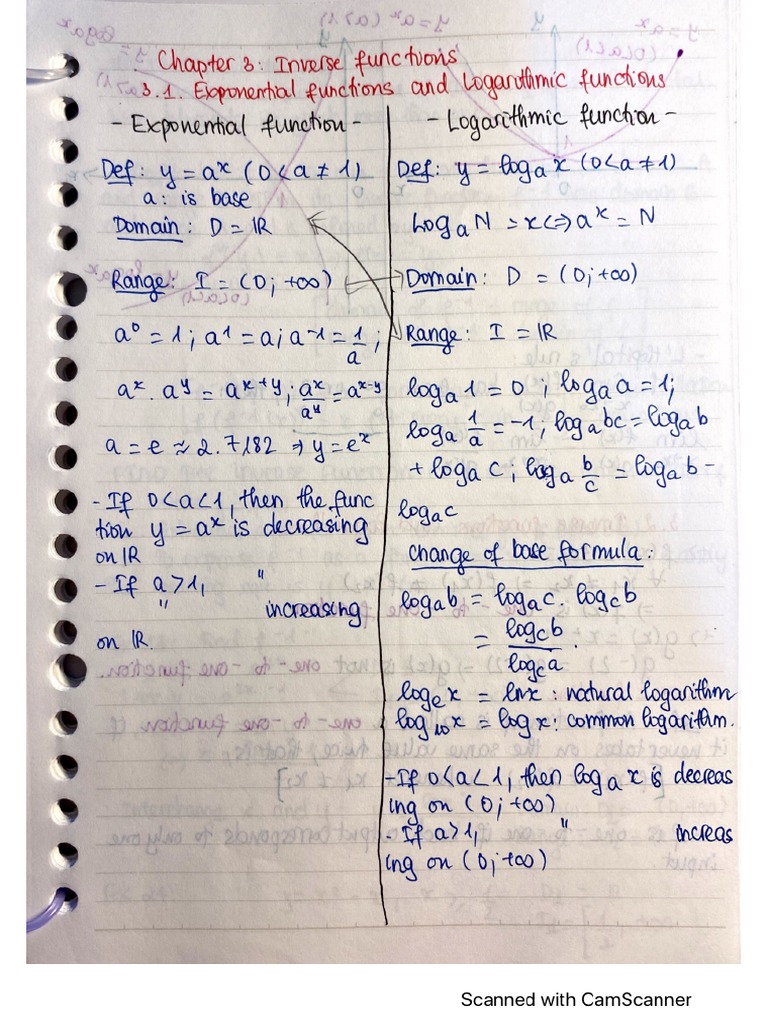 Chapter 3: Inverse functions
3.1. Exponential functions and Logarithmic functions
- Exponential function -
Def: y = aˣ (0 < a ≠ 1)
a: is base
Domain: D = IR
Range: I = (0; +∞)
a⁰ = 1; a¹ = a; a⁻¹ = 1/a;
aˣ. aʸ = aˣ⁺ʸ; aˣ/aʸ = aˣ⁻ʸ
a = e ≈ 2.7182 → y = eˣ
- If 0 < a < 1, then the func
tion y = aˣ is decreasing
on IR
- If a > 1, "
" increasing
on IR.
- Logarithmic function -
Def: y = logₐ x (0 < a ≠ 1)
logₐ N = x <=> aˣ = N
Domain: D = (0; +∞)
Range: I = IR
logₐ 1 = 0; logₐ a = 1;
logₐ 1/a = -1; logₐ bc = logₐ b
+ logₐ c; logₐ b/c = logₐ b -
logₐ c
Change of base formula:
logₐ b = logₐ c. log_c b
= log_c b / log_c a.
logₑ x = ln x: natural logarithm
log₁₀ x = log x: common logarithm.
- If 0 < a < 1, then logₐ x is decreas
ing on (0; +∞)
- If a > 1, " increas
ing on (0; +∞)
Scanned with CamScanner